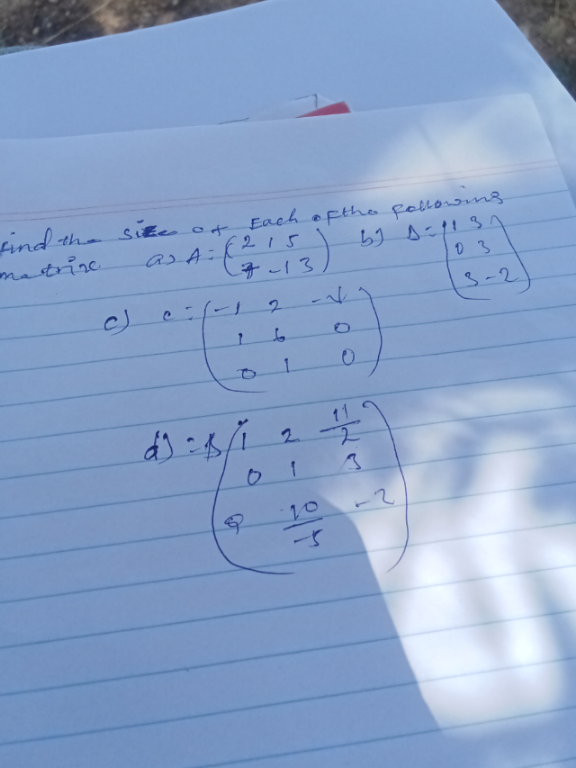 find the size of Each of the following
matrix a) A = (2 1 5
7 -1 3) b) B = (1 3
0 3
3 -2)
c) c = (-1 2
1 6 0
0 1 0)
d) = B (1 2 11/2
0 1 3
10/-5 -2)